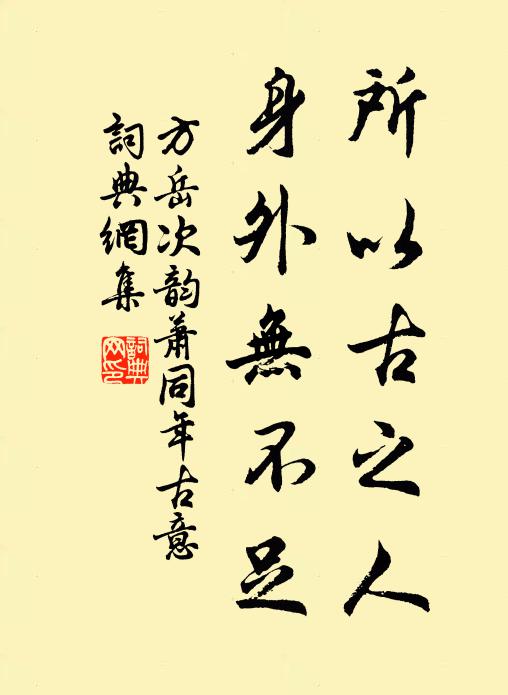 所以古之人
身外無不足
方岳次韵蕭同年古意
詞典網集
詞典网印